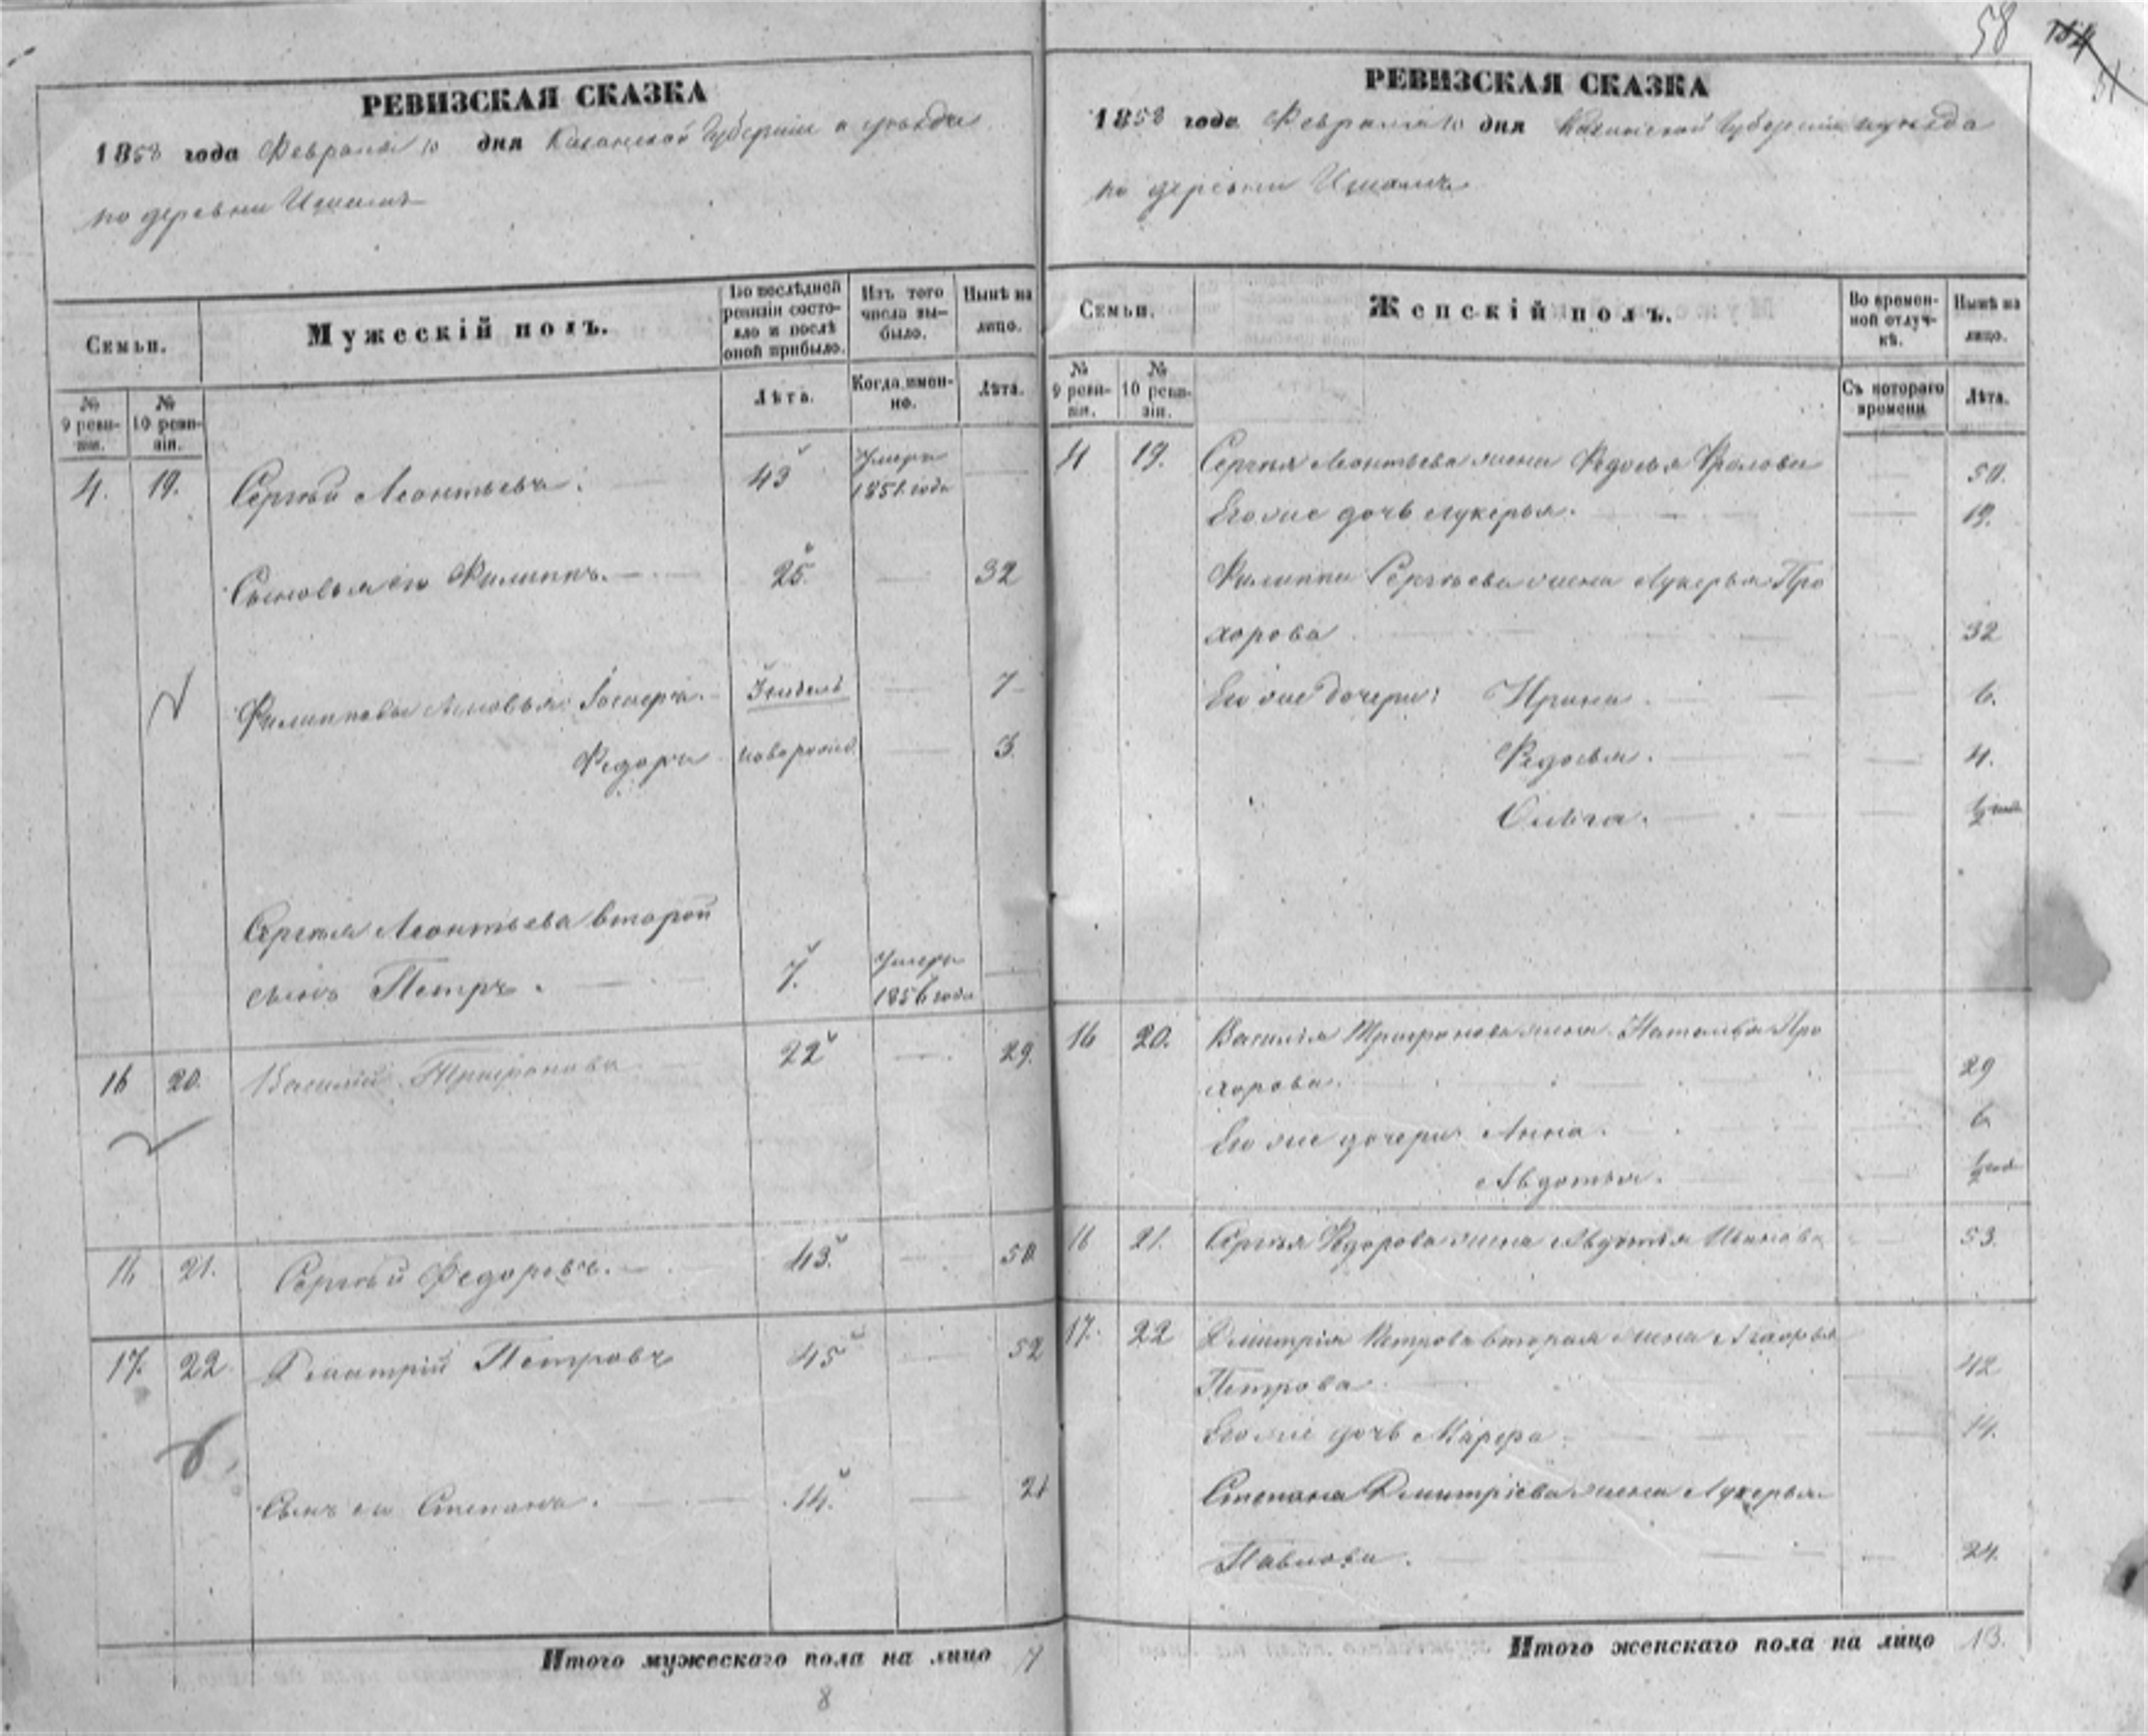 58
РЕВИЗСКАЯ СКАЗКА
1858 года Февраля 10 дня Казанской Губернии и уезда
по деревни
Семьи.
Мужескій полъ.
По послѣдней ревизіи состояло и послѣ оной прибыло.
Изъ того числа выбыло.
Нынѣ на лицо.
№ 9 ревизіи.
№ 10 ревизіи.
Лѣта.
Когда именно.
Лѣта.
4. 19. Сергѣй Леонтьевъ. 43 Умеръ 1851 года
Сыновья его Филиппъ. 25 32
Филипповы сыновья: 7
Федоръ новорожд. 3
Сергѣя Леонтьева второй
сынъ Петръ. 7. Умеръ 1856 года
16 20. Василій Трифоновъ 22 29.
16 21. Сергѣй Федоровъ. 43. 50
17. 22. Дмитрій Петровъ 45 52
Сынъ его Степанъ. 14. 21
Итого мужескаго пола на лицо 7
8
РЕВИЗСКАЯ СКАЗКА
1858 года Февраля 10 дня Казанской Губерніи и уезда
по деревни
Семьи.
Женскій полъ.
Во временной отлучкѣ.
Нынѣ на лицо.
№ 9 ревизіи.
№ 10 ревизіи.
Съ котораго времени
Лѣта.
4 19. Сергѣя Леонтьева жена Федосья Фролова 50.
Его же дочь Лукерья. 19.
Филиппа Сергѣева жена Лукерья Про
хорова 32
Его же дочери: Ирина. 6.
Федосья. 4.
1/2 год
16 20. Василья Трифонова жена Наталья Про
хорова. 29
Его же дочери Анна. 6
Авдотья. 1/2 год
16 21. Сергѣя Федорова жена Авдотья Иванова 53.
17. 22 Дмитрія Петрова вторая жена
Петрова 42
Его же дочь Марфа 14.
Степана Дмитріева жена Лукерья
Павлова. 24.
Итого женскаго пола на лицо 13.